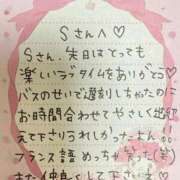 Sさんへ♡
Sさん、先日はとっても
楽しいラブタイムをありがとう♡
バスのせいで遅刻しちゃったのに
お時間合わせてやさしく出迎
えて下さりうれしかったでーす!!
フランス語めっちゃ笑った(笑)
また仲良くして下さいネ♡